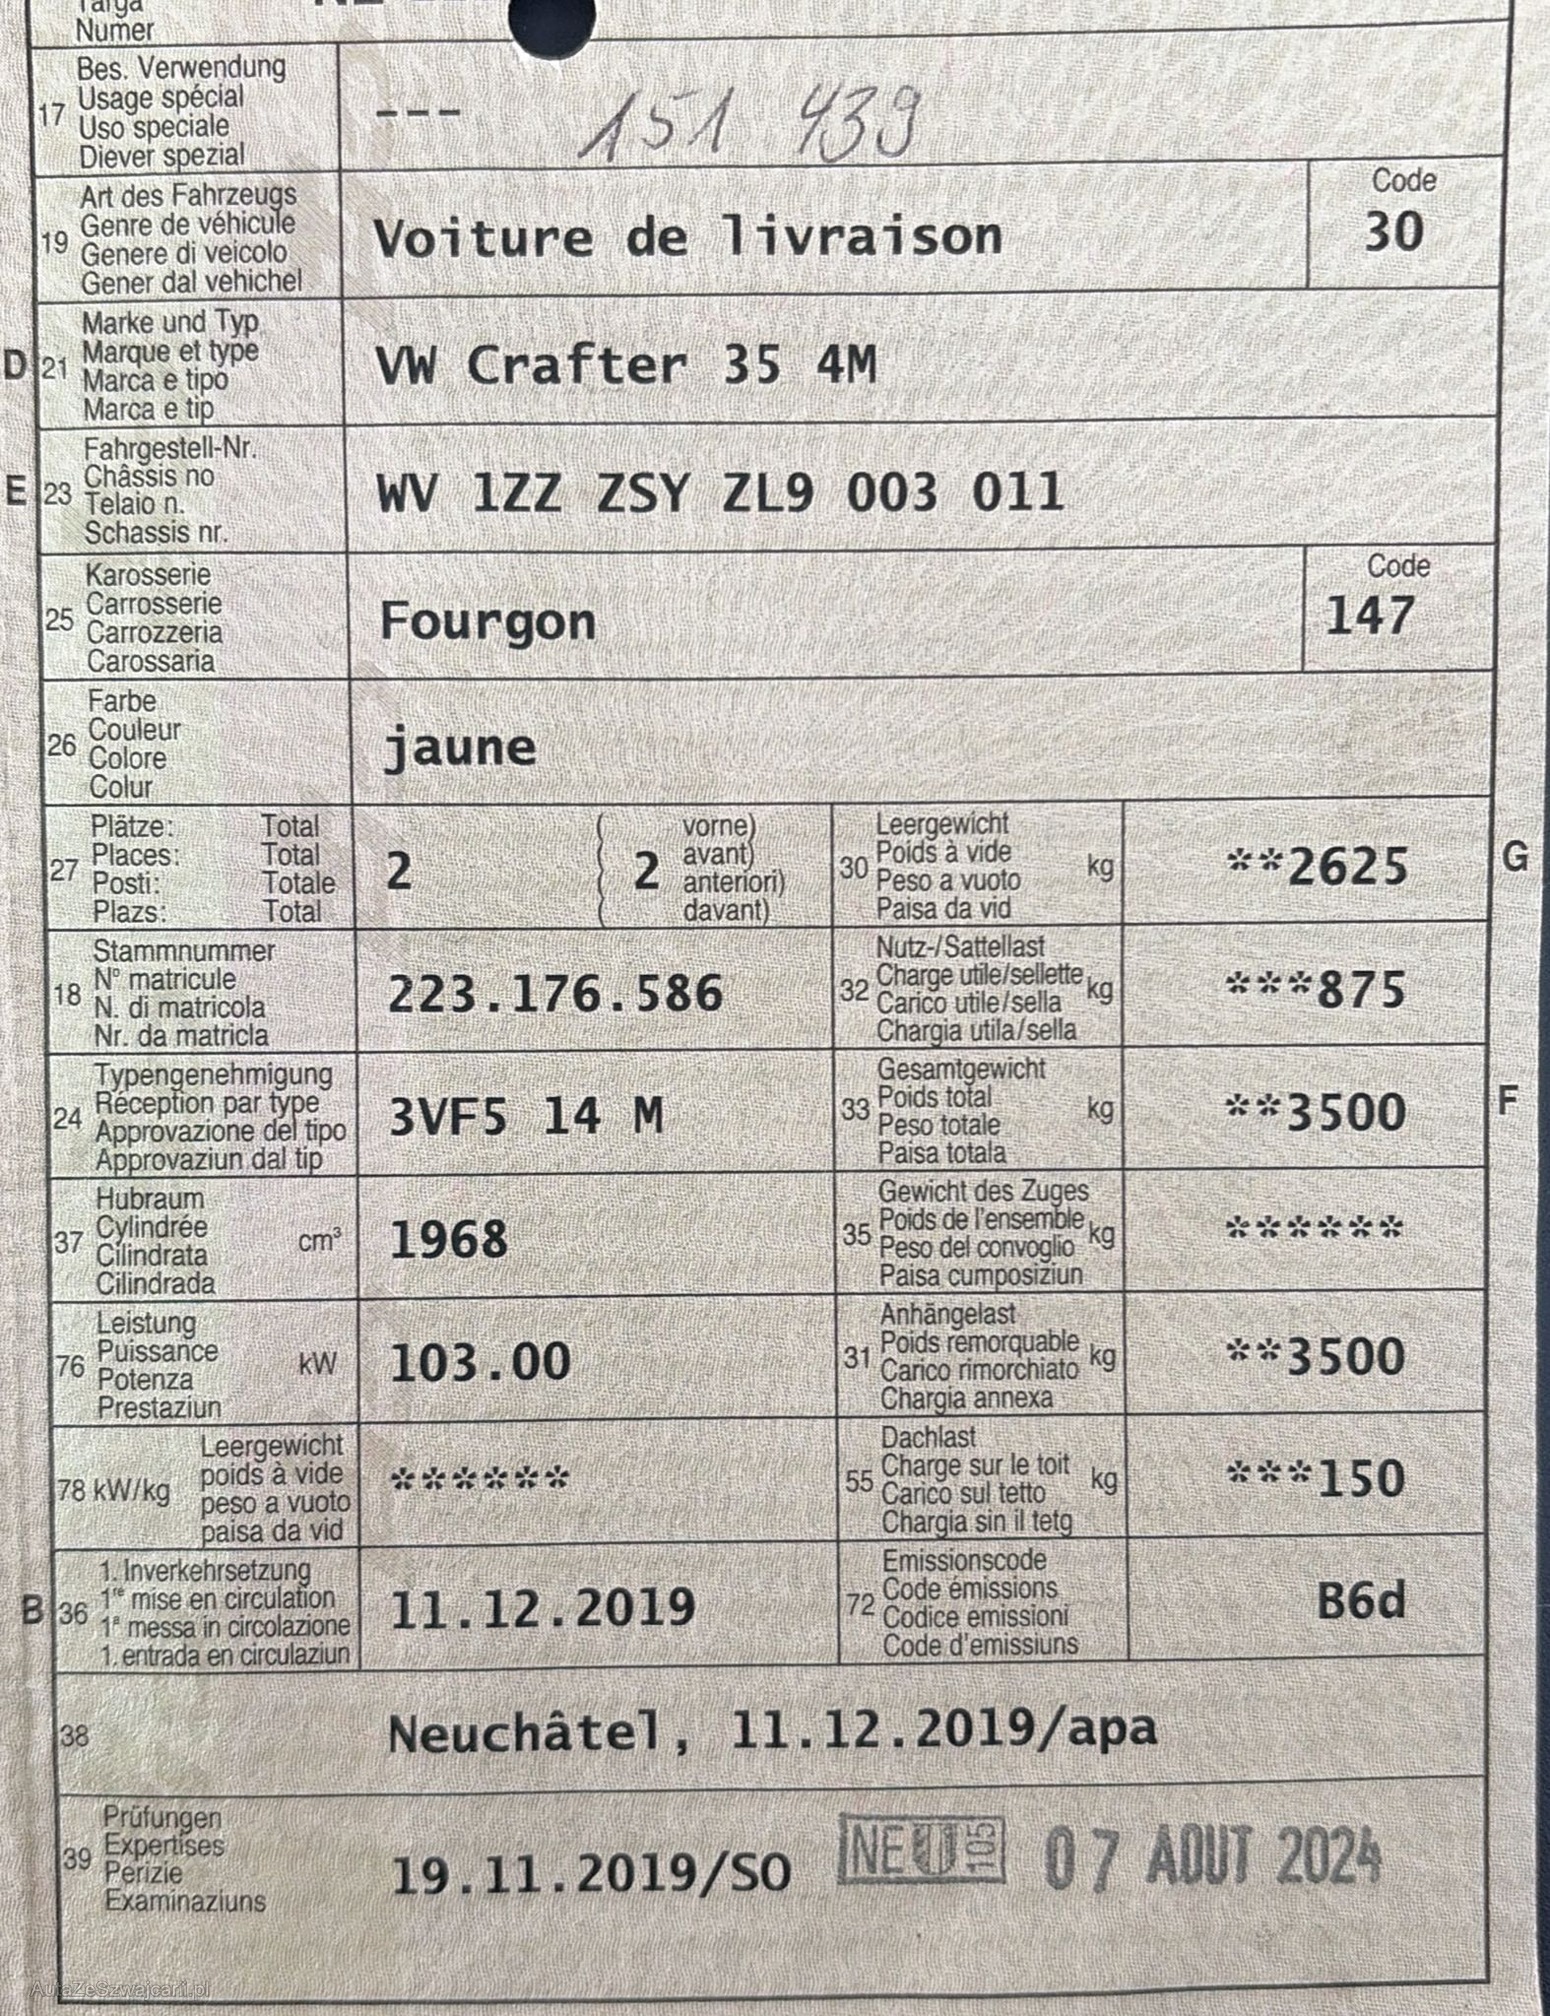 Targa
Numer
17 Bes. Verwendung
Usage spécial
Uso speciale
Diever spezial
--- 151 439
19 Art des Fahrzeugs
Genre de véhicule
Genere di veicolo
Gener dal vehichel
Voiture de livraison
Code
30
D 21 Marke und Typ
Marque et type
Marca e tipo
Marca e tip
VW Crafter 35 4M
E 23 Fahrgestell-Nr.
Châssis no
Telaio n.
Schassis nr.
WV 1ZZ ZSY ZL9 003 011
25 Karosserie
Carrosserie
Carrozzeria
Carossaria
Fourgon
Code
147
26 Farbe
Couleur
Colore
Colur
jaune
27 Plätze: Total
Places: Total
Posti: Totale
Plazs: Total
2 ( 2 vorne)
avant)
anteriori)
davant)
30 Leergewicht
Poids à vide
Peso a vuoto
Paisa da vid
kg **2625 G
18 Stammnummer
N° matricule
N. di matricola
Nr. da matricla
223.176.586
32 Nutz-/Sattellast
Charge utile/sellette
Carico utile/sella
Chargia utila/sella
kg ***875
24 Typengenehmigung
Réception par type
Approvazione del tipo
Approvaziun dal tip
3VF5 14 M
33 Gesamtgewicht
Poids total
Peso totale
Paisa totala
kg **3500 F
37 Hubraum
Cylindrée
Cilindrata
Cilindrada
cm³ 1968
35 Gewicht des Zuges
Poids de l'ensemble
Peso del convoglio
Paisa cumposiziun
kg ******
76 Leistung
Puissance
Potenza
Prestaziun
kW 103.00
31 Anhängelast
Poids remorquable
Carico rimorchiato
Chargia annexa
kg **3500
78 kW/kg Leergewicht
poids à vide
peso a vuoto
paisa da vid
******
55 Dachlast
Charge sur le toit
Carico sul tetto
Chargia sin il tetg
kg ***150
B 36 1. Inverkehrsetzung
1re mise en circulation
1a messa in circolazione
1. entrada en circulaziun
11.12.2019
72 Emissionscode
Code émissions
Codice emissioni
Code d'emissiuns
B6d
38 Neuchâtel, 11.12.2019/apa
39 Prüfungen
Expertises
Perizie
Examinaziuns
19.11.2019/SO NE 105 07 AOUT 2024
AutaZeSzwajcarii.pl